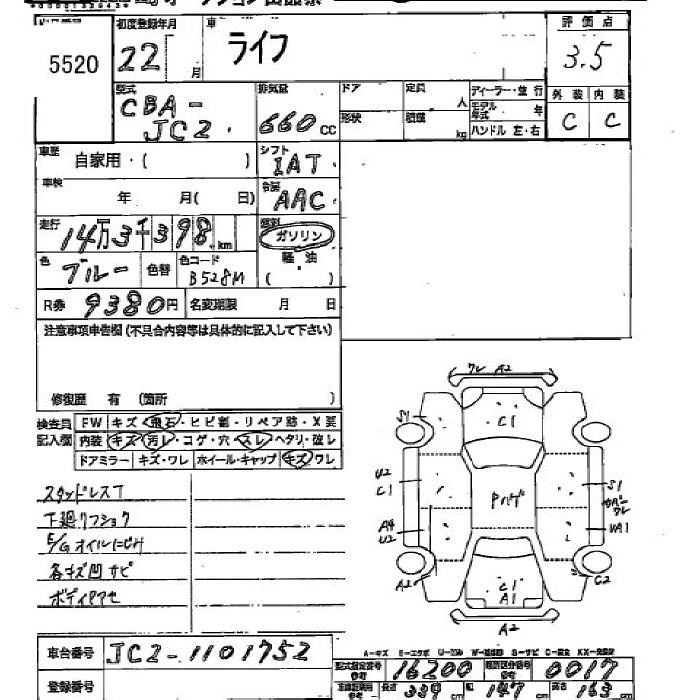 5520
初度登録年月
22 月
車
ライフ
評価点
3.5
型式
CBA-
JC2
排気量
660 cc
ドア
形状
定員
人
積載
kg
ディーラー・並行
モデル年式 年
ハンドル 左・右
外装 内装
C C
車歴
自家用・( )
シフト
IAT
車検
年 月( 日)
冷房
AAC
走行
14万3千398 km
燃料
ガソリン
軽油
( )
色
ブルー
色替
色コード
B528M
R券 9380円
名変期限 月 日
注意事項申告欄(不具合内容等は具体的に記入して下さい)
修復歴 有 (箇所 )
検査員記入欄
FW キズ・飛石・ヒビ割・リペア跡・X要
内装 キズ・汚レ・コゲ・穴・スレ・ヘタリ・破レ
ドアミラー キズ・ワレ ホイール・キャップ キズ・ワレ
スタッドレスT
下廻リフショク
E/Gオイルにじみ
各キズ凹サビ
ボディヤケセ
ワレ A2
S1
C1
U2
C1
Pハゲ
S1
A4
U2
UA1
A2
C1
A1
C2
A2
車台番号 JC2-1101752
登録番号
型式指定番号 16200
類別区分番号 0017
長さ 339 cm
幅 147 cm
高さ 163 cm